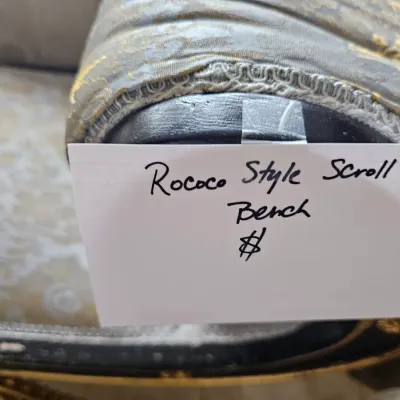 Rococo Style Scroll
Bench
$